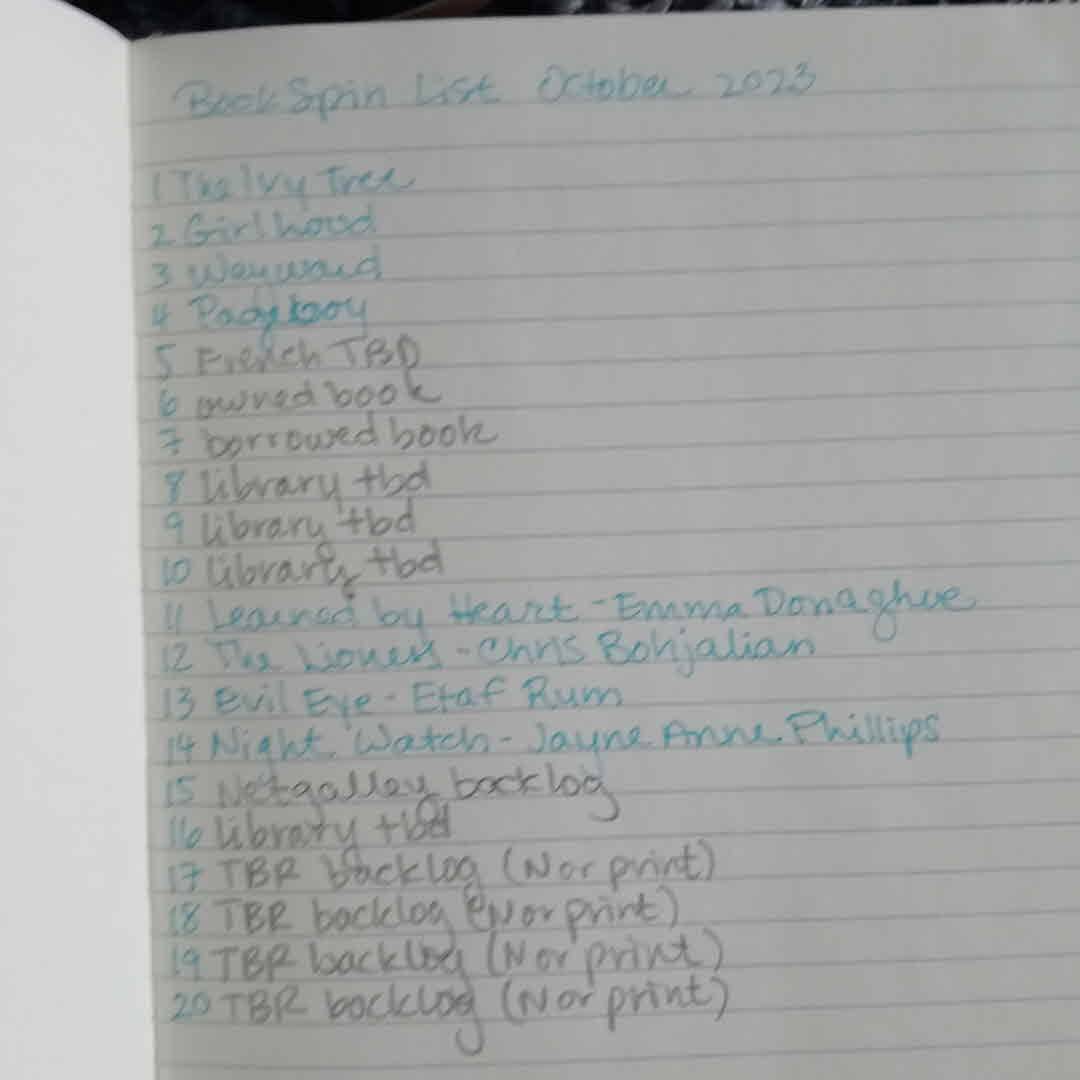 BookSpin List October 2023
1 The Ivy Tree
2 Girlhood
3 Wayward
4 Pady boy
5 French TBD
6 owned book
7 borrowed book
8 library tbd
9 library tbd
10 library tbd
11 Learned by Heart - Emma Donaghue
12 The Lioness - Chris Bohjalian
13 Evil Eye - Etaf Rum
14 Night Watch - Jayne Anne Phillips
15 Netgalley backlog
16 library tbd
17 TBR backlog (N or print)
18 TBR backlog (N or print)
19 TBR backlog (N or print)
20 TBR backlog (N or print)